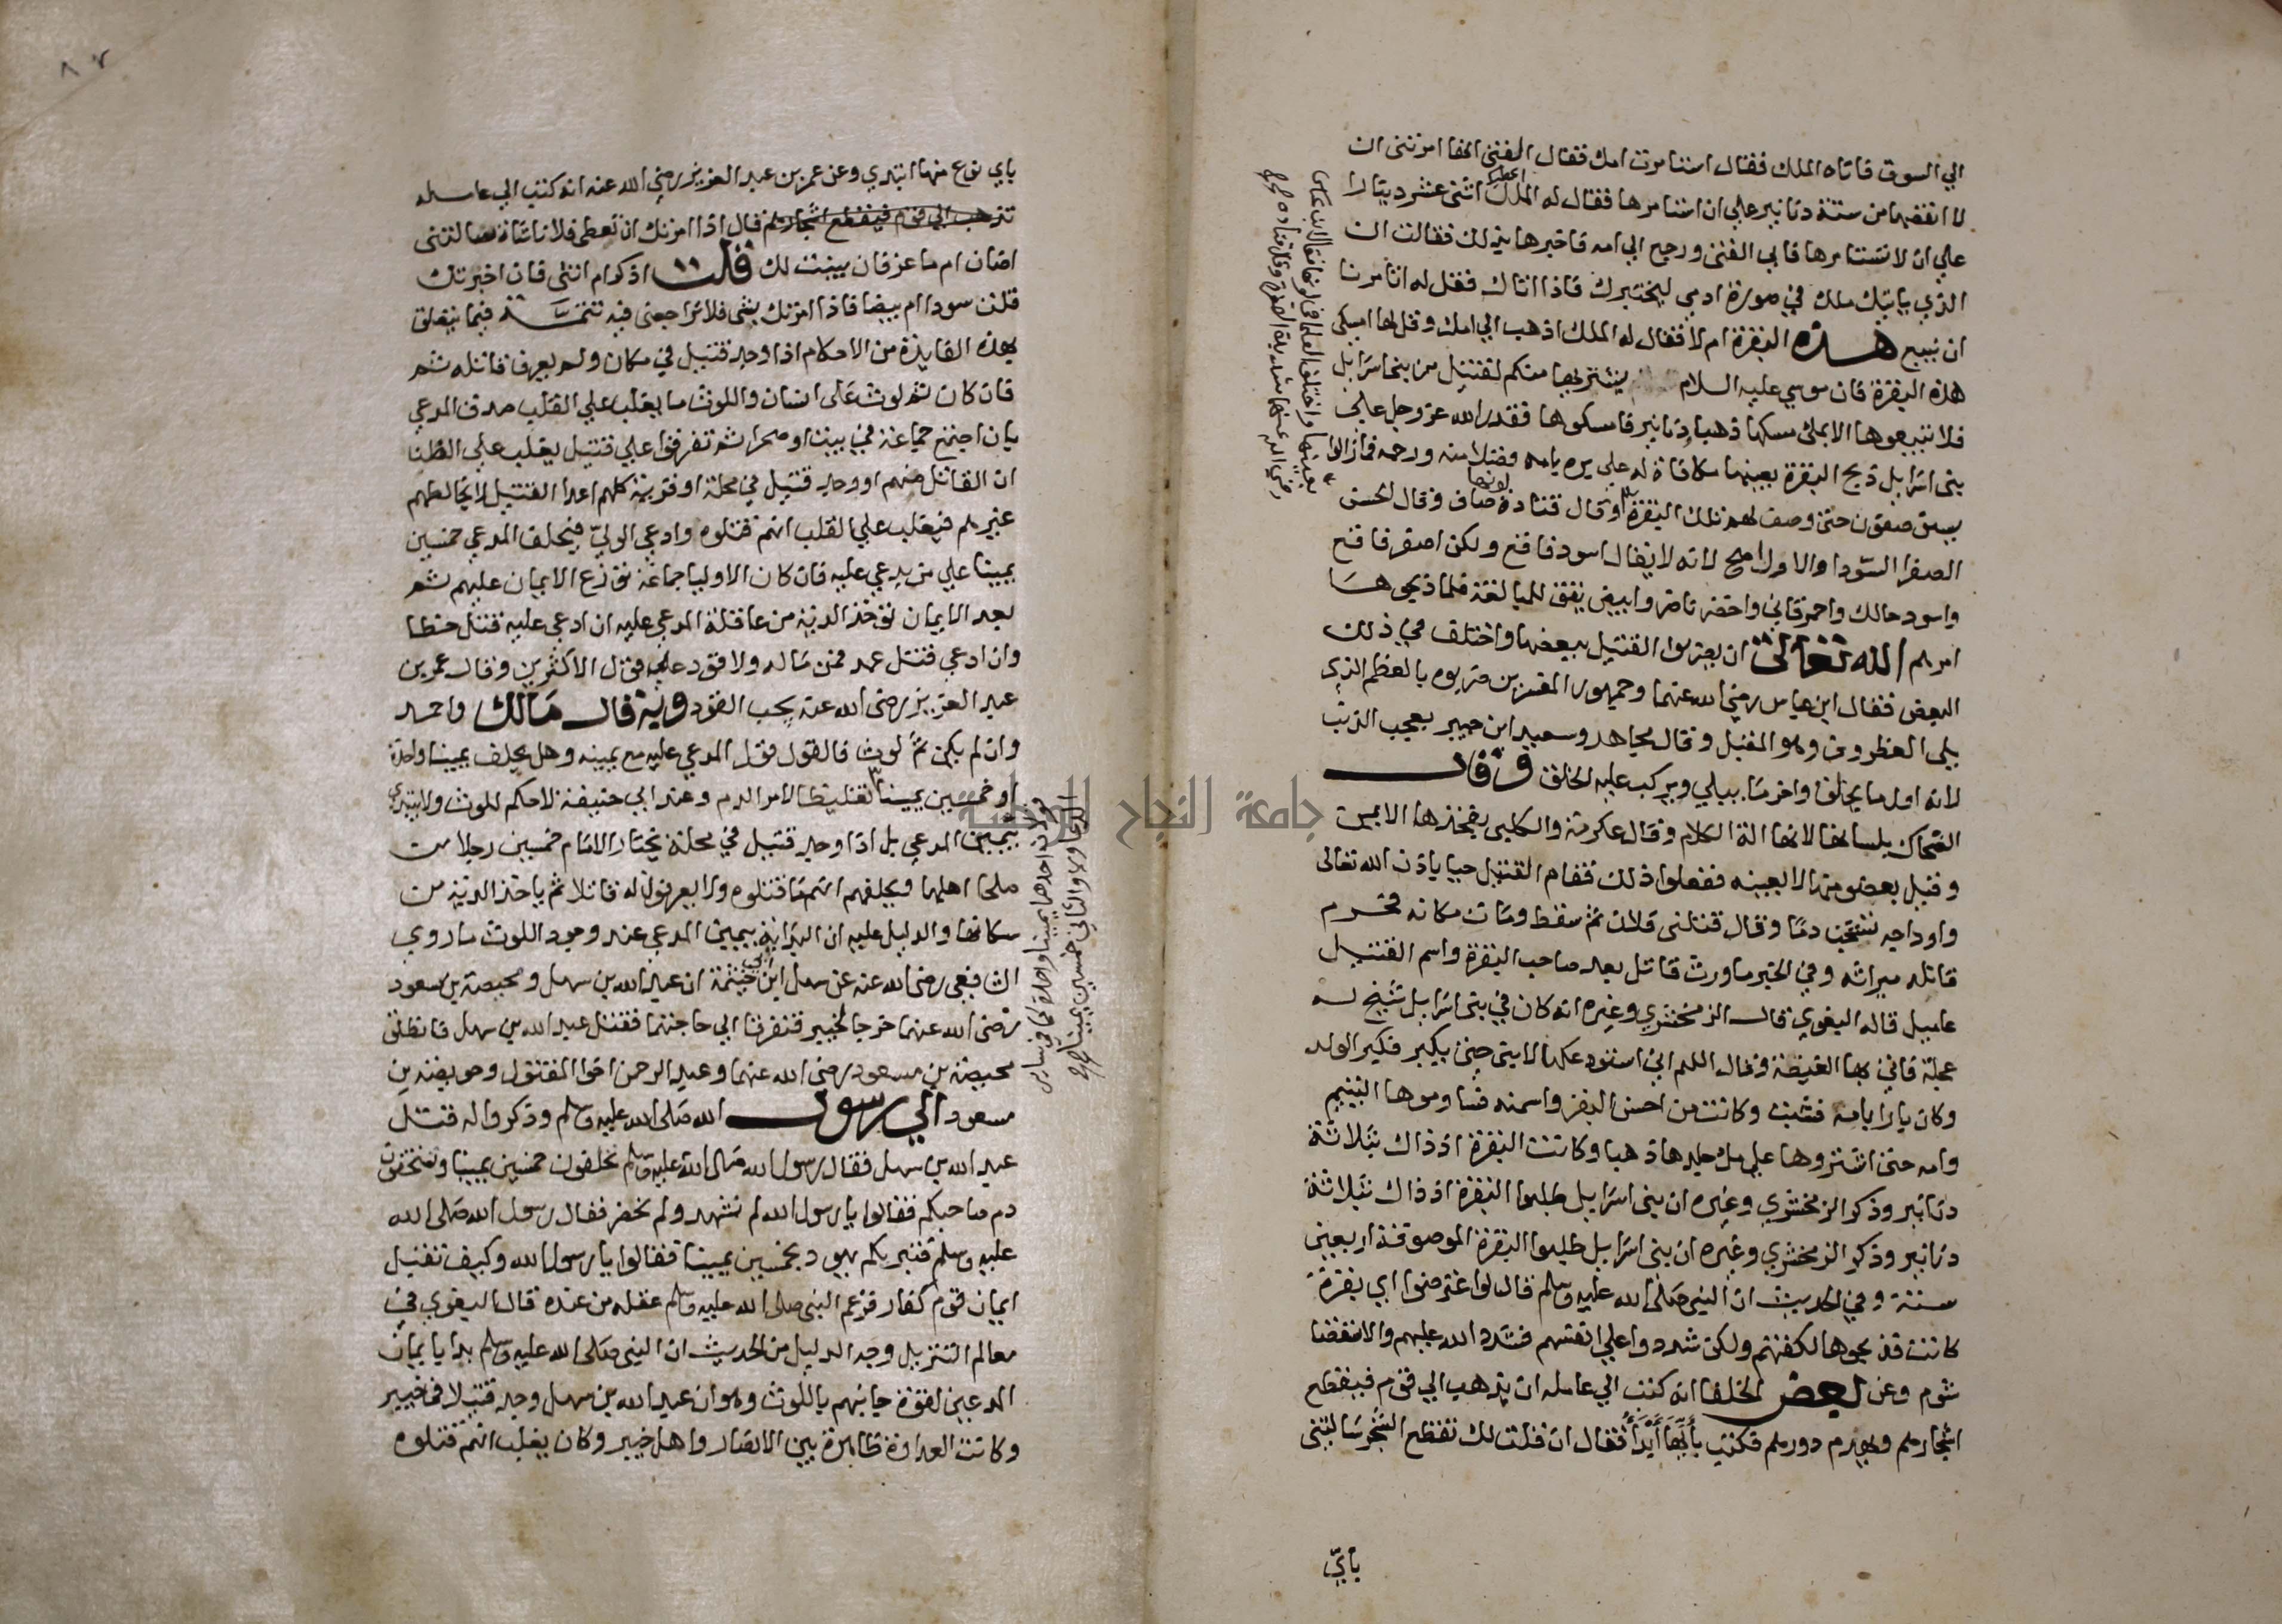 الي السوق فاتاه الملك فقال استامرت امك فقال الفتى انها امرتني ان
لا انقصها من ستة دنانير علي ان استامرها فقال له الملك اعطيك اثني عشر دينارا
علي ان لا تستامرها فابي الفتى ورجع الي امه فاخبرها بذلك فقالت ان
الذي ياتيك ملك في صورة ادمي ليختبرك فاذا اتاك فقل له اتامرنا
ان نبيع هذه البقرة ام لا فقال له الملك اذهب الي امك وقل لها امسكي
هذه البقرة فان موسي عليه السلام يشتريها منكم لقتيل من بني اسرايل
فلا تبيعوها الا بملئ مسكها ذهبا دنانير فامسكوها فقدر الله عز وجل علي
بني اسرايل ذبح البقرة بعينها مكافاة له علي بره بامه فضلا منه ورحمه فمازالوا
يستوصفون حتى وصف لهم تلك البقرة وقال قتادة لونها صاف وقال الحسن
الصفرا السودا والاول اصح لانه لا يقال اسود فاقع ولكن اصفر فاقع
واسود حالك واحمر قاني واخضر ناضر وابيض يقق للمبالغة فلما ذبحوها
امرهم الله تعالى ان يضربوا القتيل ببعضها واختلف في ذلك
البعض فقال ابن عباس رضي الله عنهما وجمهور المفسرين ضربوه بالعظم الذي
يلي الغضروف وهو المقتل وقال مجاهد وسعيد ابن جبير بعجب الذنب
لانه اول ما يخلق واخر ما يبلي ويركب عليه الخلق وقال
الضحاك بلسانها لانها الة الكلام وقال عكرمة والكلبي بفخذها الايمن
وقيل بعضو منها لا بعينه ففعلوا ذلك فقام القتيل حيا باذن الله تعالى
واوداجه تشخب دما وقال قتلني فلان ثم سقط ومات مكانه فحرم
قاتله ميراثه وفي الخبر ما ورث قاتل بعد صاحب البقرة واسم القتيل
عاميل قاله البغوي قال الزمخشري وغيره انه كان في بني اسرايل شيخ له
عجلة فاتي بها الغيضة وقال اللهم اني استودعكها لابني حتى يكبر فكبر الولد
وكان بارا بامه فشبت وكانت من احسن البقر واسمنه فساوموها اليتيم
وامه حتى اشتروها علي ملء جلدها ذهبا وكانت البقرة اذ ذاك بثلاثة
دنانير وذكر الزمخشري وغيره ان بني اسرايل طلبوا البقرة اذ ذاك بثلاثة
دنانير وذكر الزمخشري وغيره ان بني اسرايل طلبوا البقرة الموصوفة اربعين
سنة وفي الحديث ان النبي صلى الله عليه وسلم قال لو اعترضوا اي بقرة
كانت فذبحوها لكفتهم ولكن شددوا علي انفسهم فشدد الله عليهم والاستقصا
شوم وعن بعض الخلفا انه كتب الي عامله ان يذهب الي قوم فيقطع
اشجارهم ويهدم دورهم فكتب بأيها أبدأ فقال ان قلت لك تقطع الشجر سالتني
بأيّ
واختلف العلما في لونها فقال ابن عباس
رضي الله عنهما شديدة الصفرة وقال قتادة
باي نوع منها ابتدي وعن عمر بن عبد العزيز رضي الله عنه انه كتب الي عامله
تذهب الي قوم فيقطع اشجارهم قال اذا امرتك ان تعطي فلانا شاة سالتني
اضان ام ماعز فان بينت لك قلت اذكر ام انثى فان اخبرتك
قلت سودا ام بيضا فاذا امرتك بشي فلا تراجعني فيه تتمة فيما يتعلق
بهذه الفايدة من الاحكام اذا وجد قتيل في مكان ولم يعرف قاتله ثم
فان كان ثم لوث على انسان واللوث ما يغلب علي القلب صدق المدعي
بان اجتمع جماعة في بيت او صحرا ثم تفرقوا علي قتيل يغلب علي الظن
ان القاتل منهم او وجد قتيل في محلة او قرية كلهم اعدا القتيل لا يخالطهم
غيرهم فيغلب علي القلب انهم قتلوه وادعي الوليّ فيحلف المدعي خمسين
يمينا علي من يدعي عليه فان كان الاوليا جماعة توزع الايمان عليهم ثم
بعد الايمان توخذ الدية من عاقلة المدعي عليه ان ادعي عليه قتل خطا
وان ادعي قتل عمد فمن ماله ولا قود علي قول الاكثرين وقال عمر بن
عبد العزيز رضي الله عنه يجب القود وبه قال مالك واحمد
وان لم يكن ثم لوث فالقول قول المدعي عليه مع يمينه وهل يحلف يمينا واحدة
او خمسين يمينا تغليظا لامر الدم وعند ابي حنيفة لا حكم للوث ولا يبتدي
بيمين المدعي بل اذا وجد قتيل في محلة يختار الامام خمسين رجلا من
صلحا اهلها ويحلفهم انهم ما قتلوه ولا يعرفون له قاتلا ثم ياخذ الدية من
سكانها والدليل عليه ان البداية بيمين المدعي عند وجود اللوث ما روي
الشافعي رضي الله عنه عن سهل ابن ابي خيثمة ان عبد الله بن سهل ومحيصة بن مسعود
رضي الله عنهما خرجا لخيبر فتفرقا الي حاجتهما فقتل عبد الله بن سهل فانطلق
محيصة بن مسعود رضي الله عنهما وعبد الرحمن اخوا المقتول وحويصة بن
مسعود الي رسول الله صلى الله عليه وسلم وذكروا له قتل
عبد الله بن سهل فقال رسول الله صلى الله عليه وسلم تحلفون خمسين يمينا وتستحقون
دم صاحبكم فقالوا يا رسول الله لم نشهد ولم نحضر فقال رسول الله صلى الله
عليه وسلم فتبريكم يهود بخمسين يمينا فقالوا يا رسول الله وكيف نقبل
ايمان قوم كفار فزعم النبي صلى الله عليه وسلم عقله من عنده قال البغوي في
معالم التنزيل وجه الدليل من الحديث ان النبي صلى الله عليه وسلم بدا بايمان
المدعيين لقوة جانبهم باللوث وهو ان عبد الله بن سهل وجد قتيلا في خيبر
وكانت العداوة ظاهرة بين الانصار واهل خيبر وكان يغلب انهم قتلوه
احدهما يمينا واحدة كما في ساير
الدعاوي والثاني خمسين يمينا
جامعة النجاح الوطنية